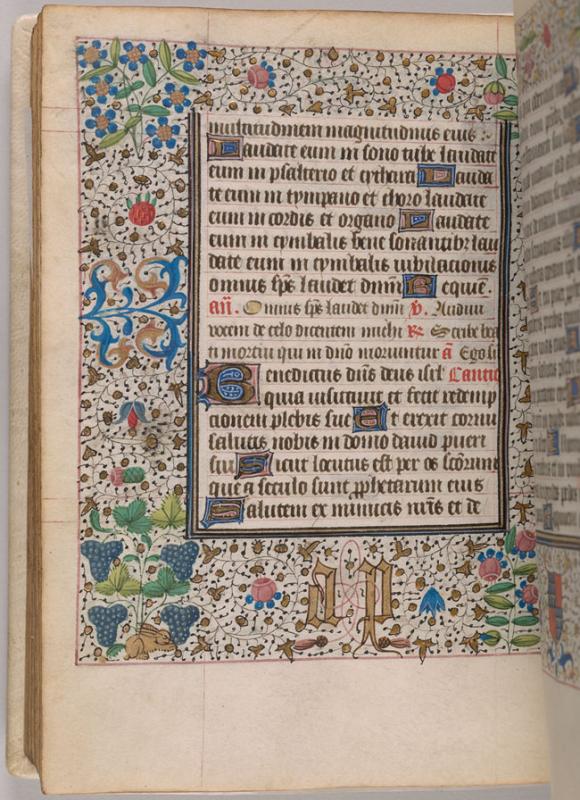 multitudinem magnitudinis eius :
Laudate eum in sono tube laudate
eum in psalterio et cythara Lauda
te eum in tympano et choro laudate
eum in cordis et organo Laudate
eum in cymbalis bene sonantibʒ lau
date eum in cymbalis iubilacionis
omnis sp̄s laudet dnm̄ Requiē
an̄. Omnis sp̄s laudet dnm̄ v. Audiui
vocem de celo dicentem michi ꝶ Scribe bea
ti mortui qui in dnō moriuntur ā Ego sū
Benedictus dn̄s deus isrl̄ Cantic
quia uisitauit et fecit redemp
cionem plebis sue Et erexit cornu
salutis nobis in domo dauid pueri
sui Sicut locutus est per os scōrum
que a seculo sunt ꝓphetarum eius
Salutem ex inimicis nr̄is et de